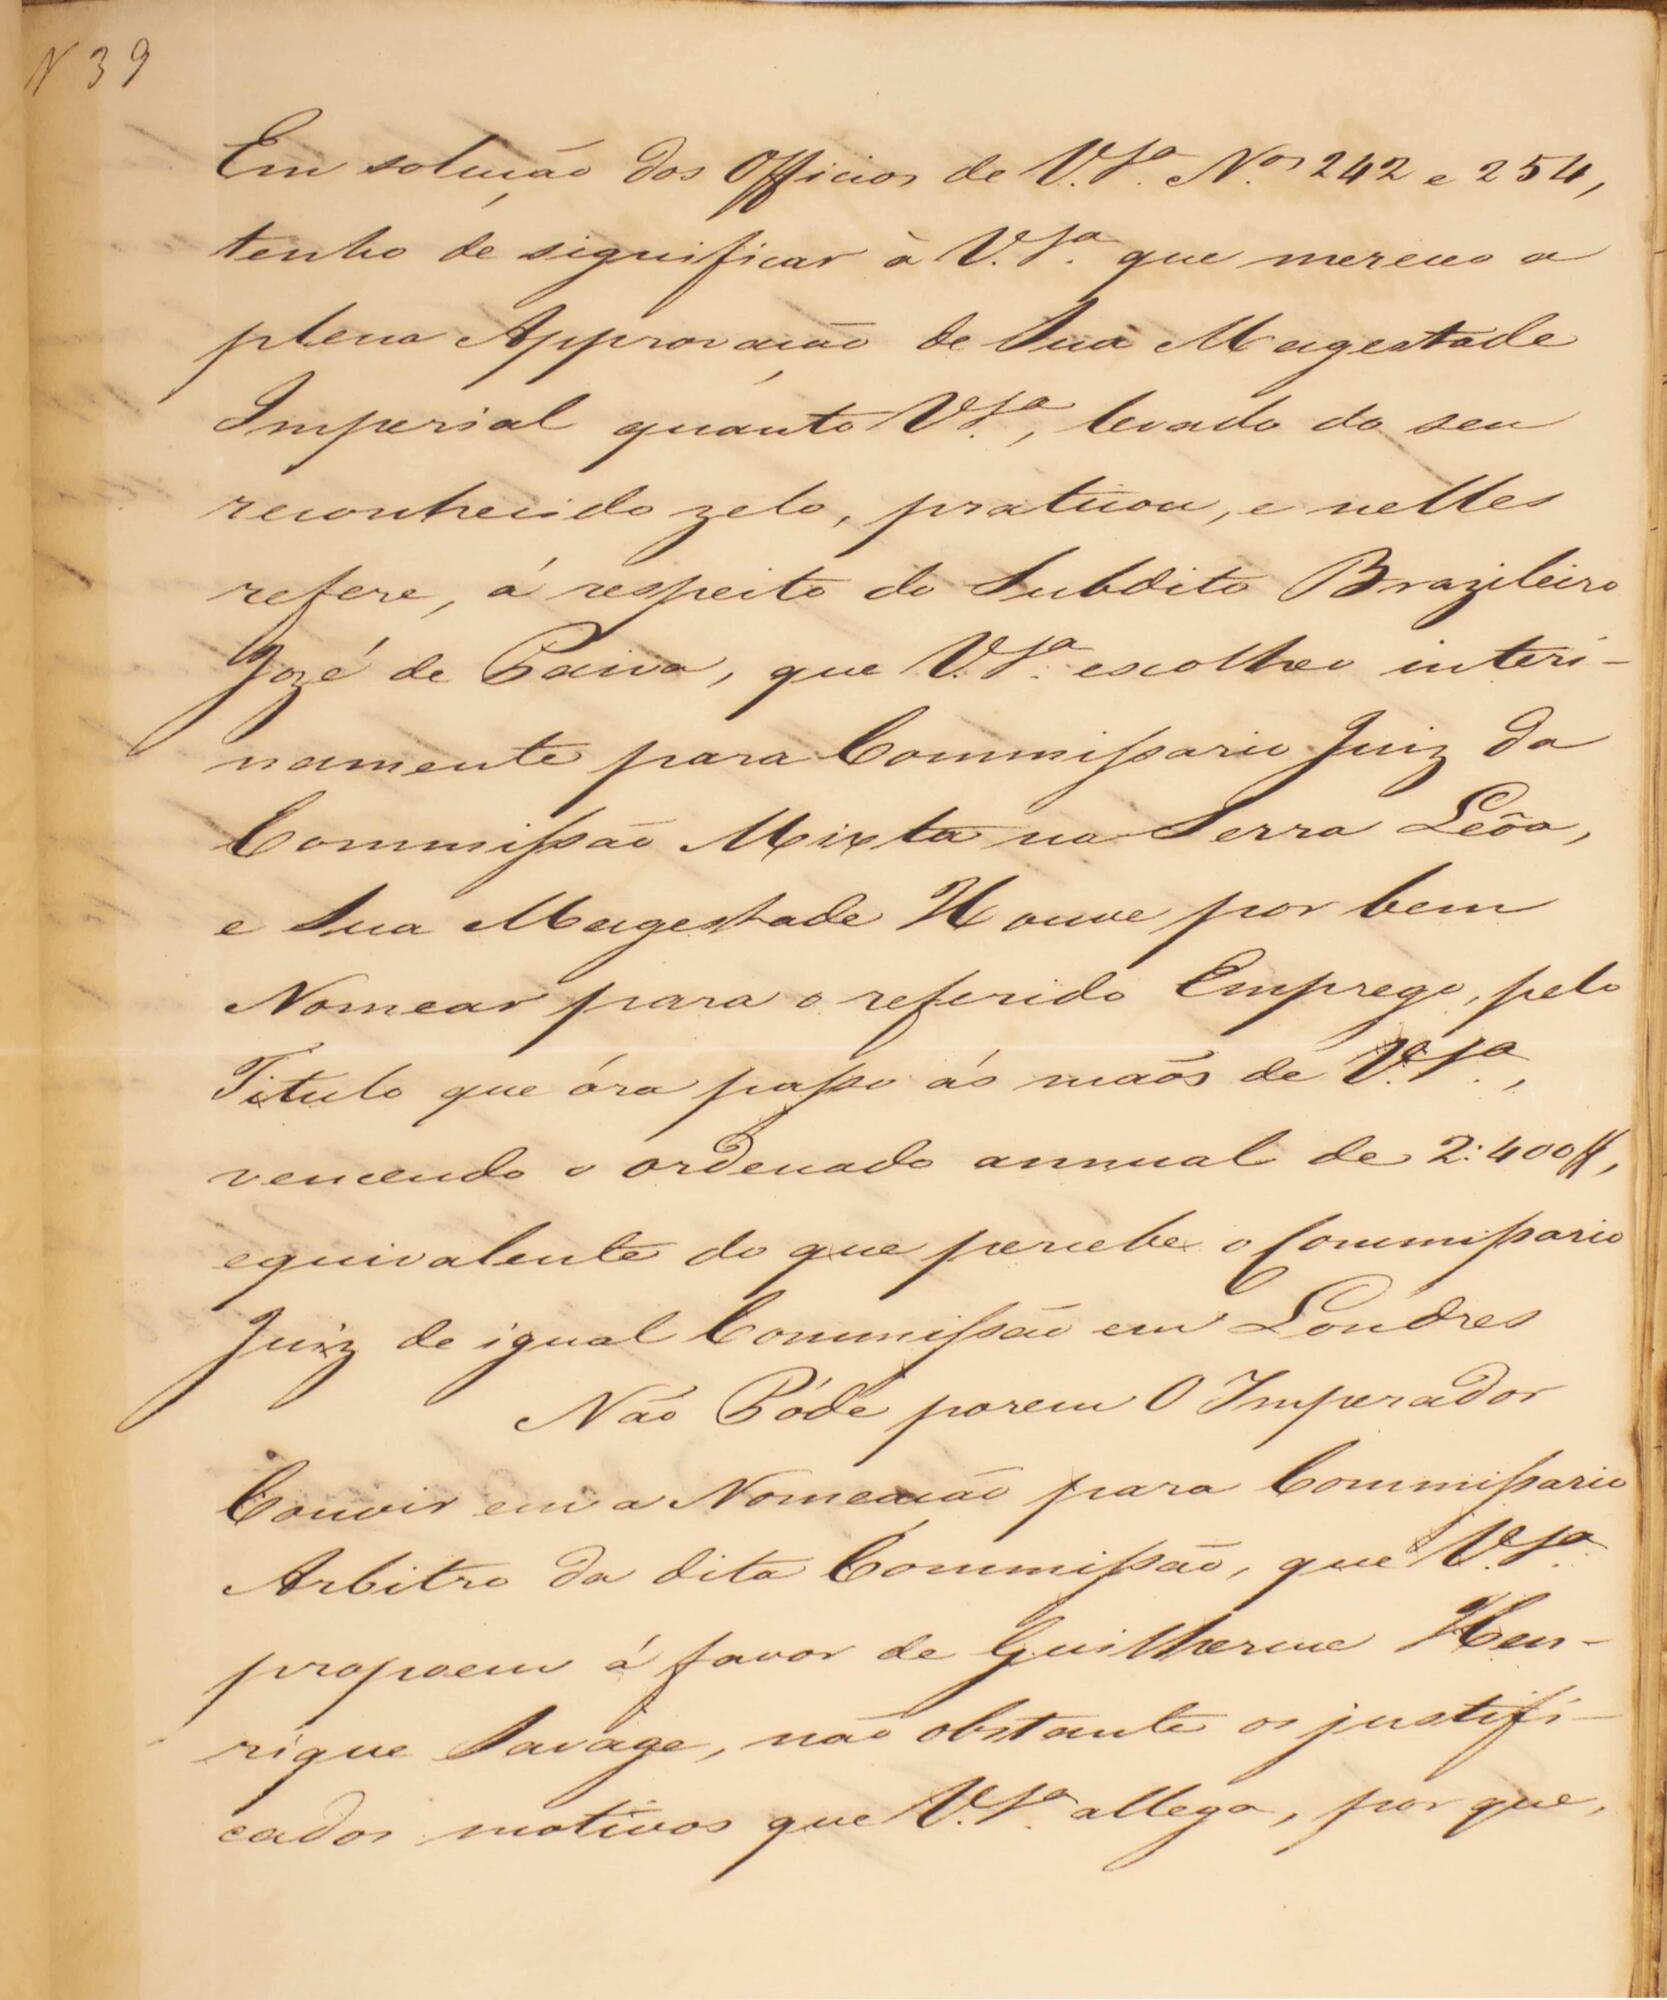 N 39
Em solução dos Officios de V.Sª. N.ºs 242 e 254,
tenho de significar à V.Sª. que mereceo a
plena Approvação de Sua Magestade
Imperial quanto V.Sª., levado do seu
reconhecido zelo, praticou, e nelles
refere, á respeito do Subdito Brazileiro
Jozé de Paiva, que V.Sª. escolheo interi-
namente para Commissario Juiz da
Commissão Mixta na Serra Leôa,
e Sua Magestade Houve por bem
Nomear para o referido Emprego, pelo
Titulo que óra passo ás maõs de V.Sª.,
vencendo o ordenado annual de 2:400$,
equivalente do que percebe o Commissario
Juiz de igual Commissão em Londres
Não Póde porem O Imperador
Convir em a Nomeação para Commissario
Arbitro da dita Commissão, que V.Sª.
propoem á favor de Guilherme Hen-
rique Savage, não obstante os justifi-
cados motivos que V.Sª. allega, por que,